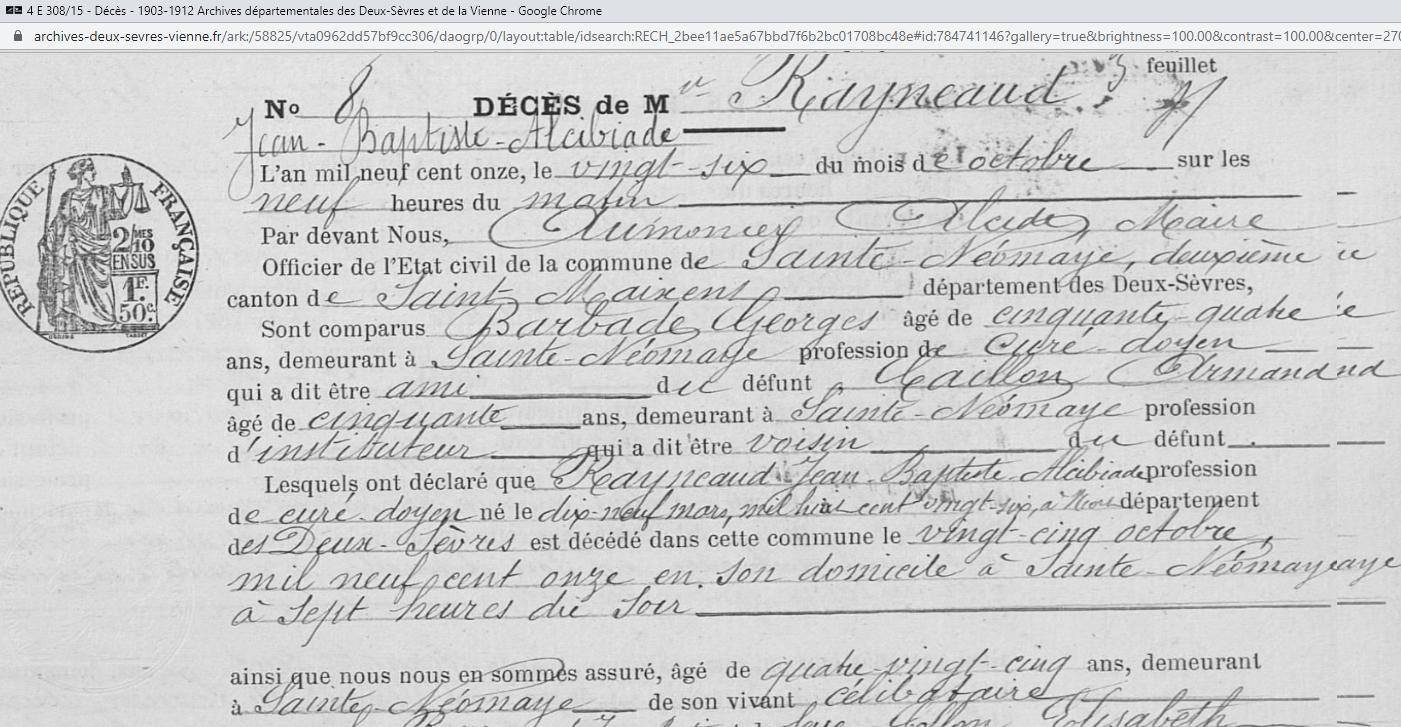 4 E 308/15 - Décès - 1903-1912 Archives départementales des Deux-Sèvres et de la Vienne - Google Chrome
archives-deux-sevres-vienne.fr/ark:/58825/vta0962dd57bf9cc306/daogrp/0/layout:table/idsearch:RECH_2bee11ae5a67bbd7f6b2bc01708bc48e#id:784741146?gallery=true&brightness=100.00&contrast=100.00&center=270
feuillet
No 8 DÉCÈS de Mr Rayneaud
Jean-Baptiste-Alcibiade
L'an mil neuf cent onze, le vingt-six du mois de octobre sur les
neuf heures du matin
Par devant Nous, Aumonier Maire
Officier de l'Etat civil de la commune de Sainte-Néomaye, deuxième
canton de Saint Maixent département des Deux-Sèvres,
Sont comparus Barbade Georges âgé de cinquante quatre
ans, demeurant à Sainte-Néomaye profession de Curé-doyen
qui a dit être ami du défunt, Caillon Armand
âgé de cinquante ans, demeurant à Sainte-Néomaye profession
d'instituteur qui a dit être voisin du défunt
Lesquels ont déclaré que Rayneaud Jean-Baptiste-Alcibiade profession
de curé-doyen né le dix-neuf mars, mil huit cent vingt-six, à département
des Deux-Sèvres est décédé dans cette commune le vingt-cinq octobre,
mil neuf cent onze en son domicile à Sainte-Néomaye
à sept heures du soir
ainsi que nous nous en sommes assuré, âgé de quatre-vingt-cinq ans, demeurant
à Sainte-Néomaye de son vivant célibataire
Elisabeth
RÉPUBLIQUE FRANÇAISE
2 MES 10
EN SUS
1F.
50c.